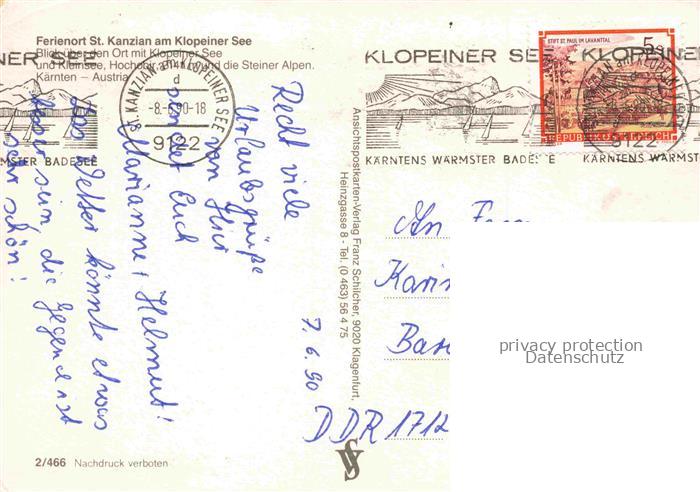 Ferienort St. Kanzian am Klopeiner See
Blick über den Ort mit Klopeiner See
und Kleinsee, Hochobir 2141 m und die Steiner Alpen.
Kärnten – Austria
KLOPEINER SEE
ST. KANZIAN AM KLOPEINER SEE
d
-8.-6.90-18
9122
KÄRNTENS WÄRMSTER BADESEE
KLOPEINER SEE
KÄRNTENS WÄRMSTER BADESEE
STIFT ST. PAUL IM LAVANTTAL
5
REPUBLIK ÖSTERREICH
9122
KÄRNTENS WÄRMST
7.6.90
Recht viele
Urlaubsgrüße
von hier
sendet Euch
Marianne + Helmut!
Das Wetter könnte etwas
besser sein die Gegend ist
sehr schön!
Ansichtspostkarten-Verlag Franz Schilcher, 9020 Klagenfurt,
Heinzgasse 8 - Tel. (0 463) 56 4 75
An
DDR 1712
privacy protection
Datenschutz
2/466 Nachdruck verboten